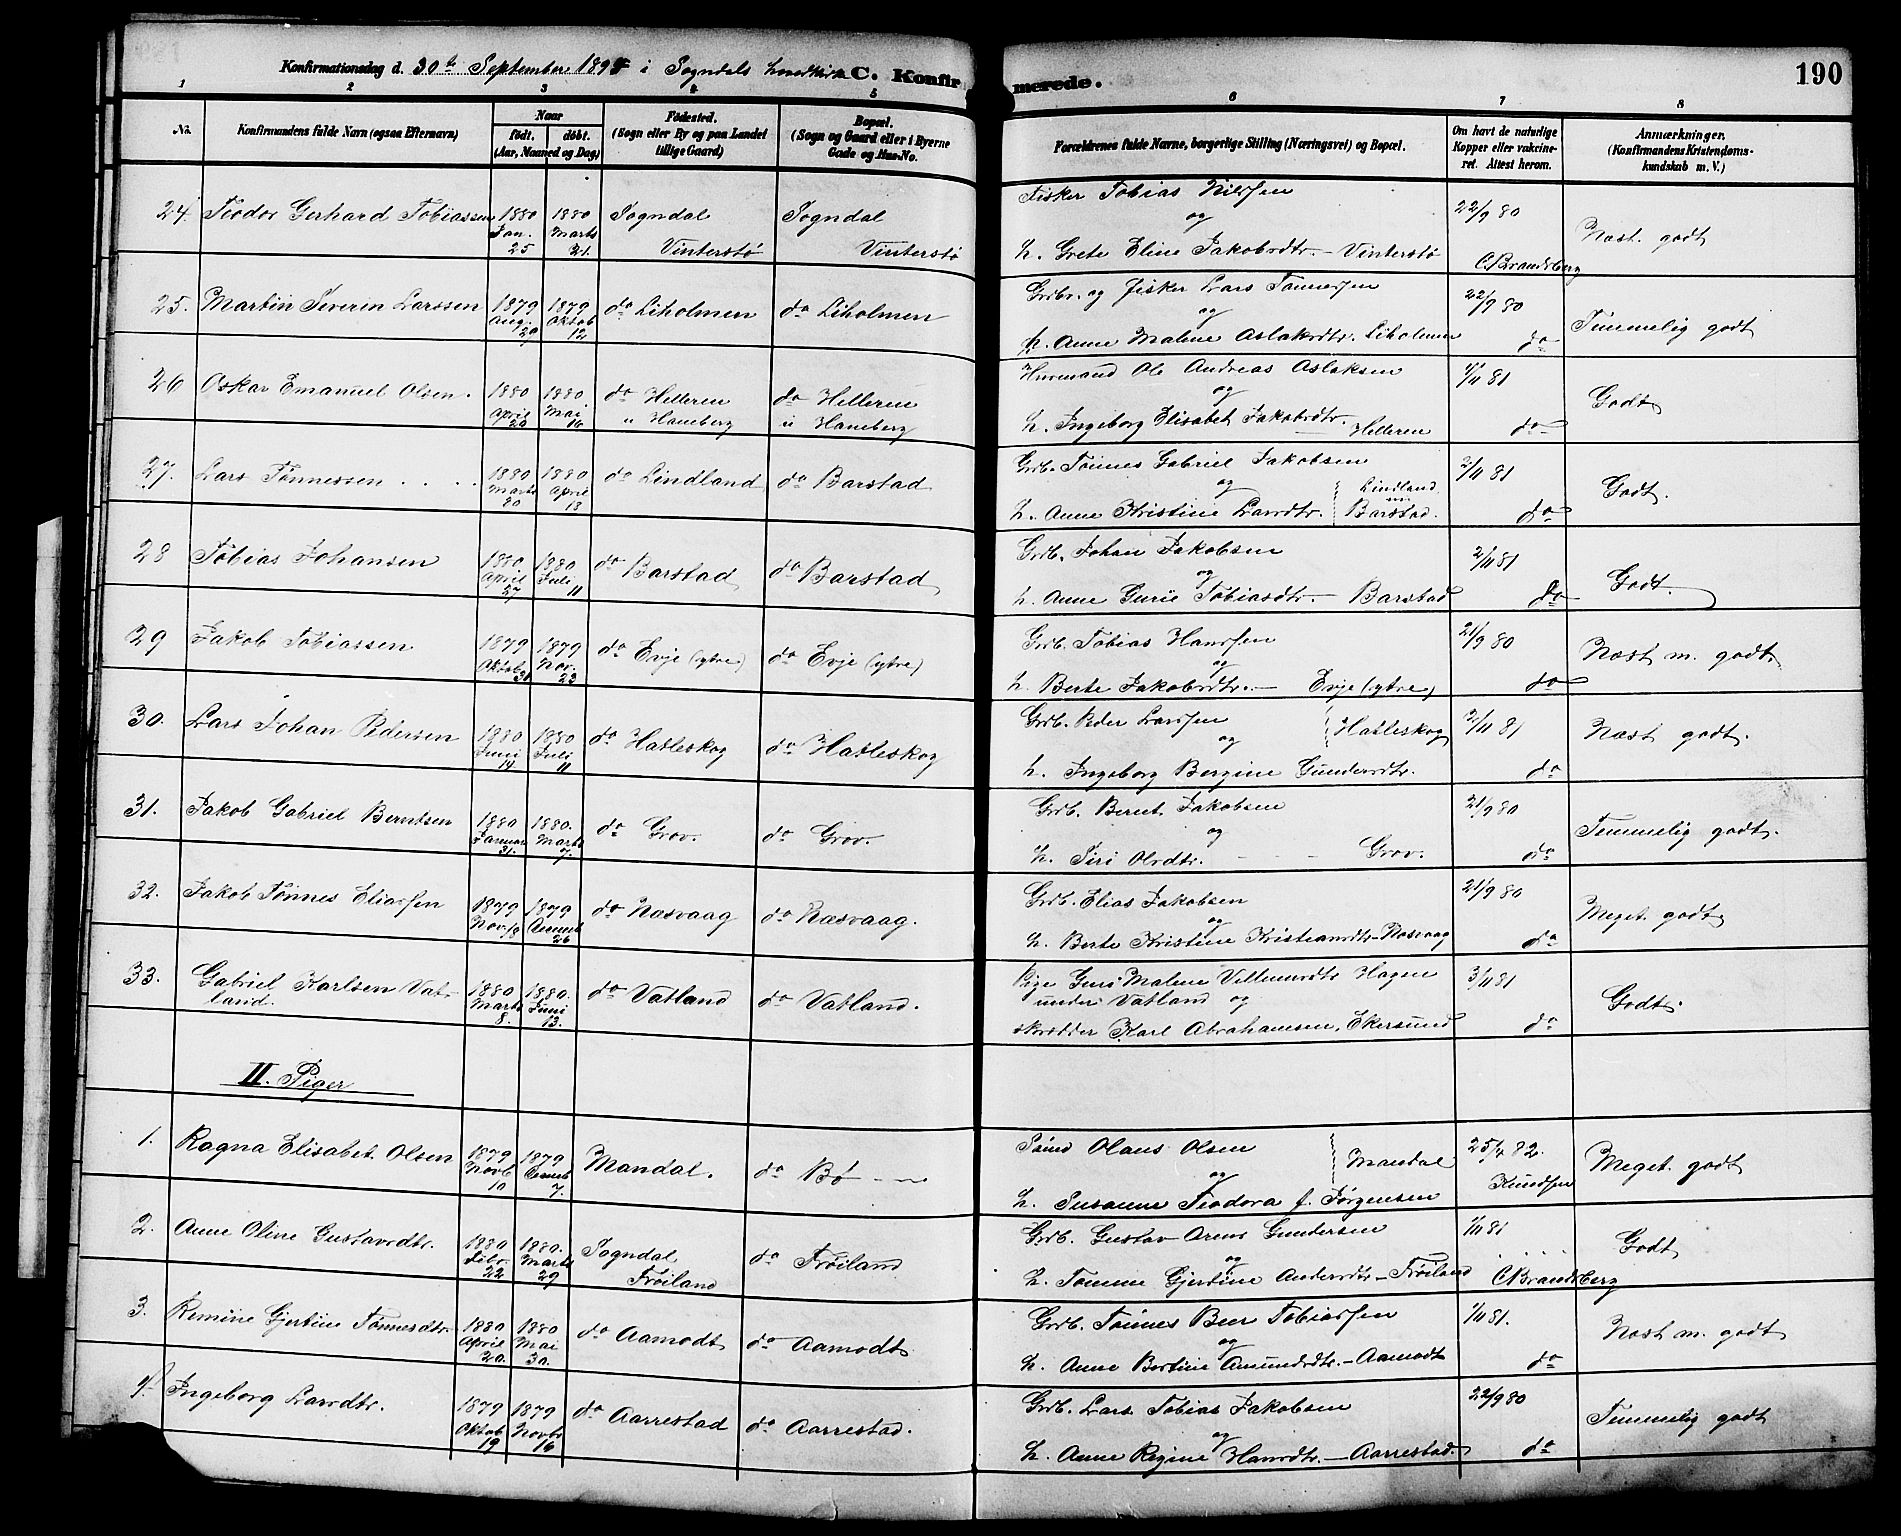 Konfirmationsdag d. 30te September 1894 i Sogndals C. Konfirmerede. 190
1 2 3 4 5 6 7 8
No. Konfirmandens fulde Navn (ogsaa Efternavn) Naar født. døbt. (Aar, Maaned og Dag) Fødested. (Sogn eller By og paa Landet tillige Gaard) Bopæl. (Sogn og Gaard eller i Byerne Gade og Hus-No. Forældrenes fulde Navne, borgerlige Stilling (Næringsvei) og Bopæl. Om havt de naturlige Kopper eller vakcineret. Attest herom. Anmærkninger. (Konfirmandens Kristendomskundskab m. V.)
24. Teodor Gerhard Tobiassen 1880 Jan. 25 1880 Marts 21. Sogndal Vinterstø Sogndal Vinterstø Fisker Tobias Nilssen 22/9 80 Næst. godt
og
h. Grete Eline Jakobsdtr. - Vinterstø C. Brandsberg
25. Martin Severin Larssen 1879 Aug. 29 1879 Oktob 12 do Liholmen do Liholmen Grdbr. og Fisker Lars Tønnessen 22/9 80 Temmelig godt
og
h. Anne Malene Aslaksdtr. Liholmen do
26 Oskar Emanuel Olsen. 1880 April 20 1880. Mai 16 do Helleren u Haneberg do Helleren u Haneberg Husmand Ole Andreas Aslaksen 1/11 81 Godt
og
h. Ingeborg Elisabet Jakobsdtr. Helleren do
27. Lars Tønnessen 1880 Marts 20 1880 April 13 do Lindland do Barstad Grdb. Tønnes Gabriel Jakobsen 2/11 81 Godt.
og Lindland
h. Anne Kristine Larsdtr. Barstad. do
28 Tobias Johansen 1880. April 27 1880 Juli 11 do Barstad do Barstad Grdb. Johan Jakobsen 2/11 81 Godt.
og
h. Anne Gurie Tobiasdtr. - Barstad do
29 Jakob Tobiassen 1879 Oktob. 31 1879 Nov. 23 do Evje (ytre) do Evje (ytre) Grdb. Tobias Hanssen 21/9 80 Næst m. godt.
og
h. Berte Jakobsdtr. - Evje (ytre) do
30. Lars Johan Pedersen 1880 Juni 14 1880 Juli 11 do Hatleskog do Hatleskog Grdb. Peder Larssen Hatleskog 2/11 81 Næst godt.
og
h. Ingeborg Bergine Gundersdtr. do
31. Jakob Gabriel Berntsen 1880 Januar 31. 1880. Marts 7. do Grov. do Grov. Grdb. Bernt Jakobsen 21/9 80 Temmelig godt.
og
h. Siri Olsdtr. - - - Grov. do
32. Jakob Tønnes Eliassen 1879 Nov. 18 1879 Decemb 26 do Næsvaag do Næsvaag. Grdb. Elias Jakobsen 21/9 80 Meget godt
og
h. Berte Kristine Kristiansdtr - Næsvaag do
33. Gabriel Karlsen Vatland. 1880 Marts 8. 1880. Juni 13. do Vatland do Vatland. Pige Guri Malene Villumsdtr Hagen 3/11 81 Godt.
under Vatland og
skrædder Karl Abrahamsen, Ekersund do
II. Piger
1. Ragna Elisabet Olsen 1879 Novb 10 1879 Decemb 7. Mandal. do Bø Olaus Olsen Mandal 25/4 82. Meget godt
og Knudsen
h. Susanne Teodora f. Jørgensen
2. Anne Oline Gustavsdtr. 1880 Febr. 22 1880. Marts 29 Sogndal Frøiland do Frøiland Grdb. Gustav Arent Gundersen 1/11 81 Godt
og
h. Tomine Gjertine Andersdtr - Frøiland C Brandsberg
3. Remine Gjertine Tønnesdtr. 1880 April 20. 1880 Mai 30. do Aamodt do Aamodt Grdb. Tønnes Beer Tobiassen 1/11 81. Næst m. godt
og
h. Anne Bertine Amundsdtr. - Aamodt do
4. Ingeborg Larsdtr. 1879 Oktob 19 1879 Novbr 16 do Aarrestad do Aarrestad. Grdb. Lars Tobias Jakobsen 22/9 80 Temmelig godt
og
h. Anne Regine Hansdtr. - Aarrestad. do